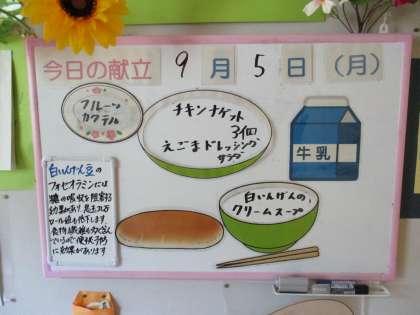 今日の献立 9月5日(月)
フルーツ
カクテル
チキンナゲット
3個
えごまドレッシング
サラダ
牛乳
白いんげんの
クリームスープ
白いんげん豆の
フォセオラミンには
糖の吸収を阻害する
効果があり、
食物繊維も
ているので便秘予防
に効果があります